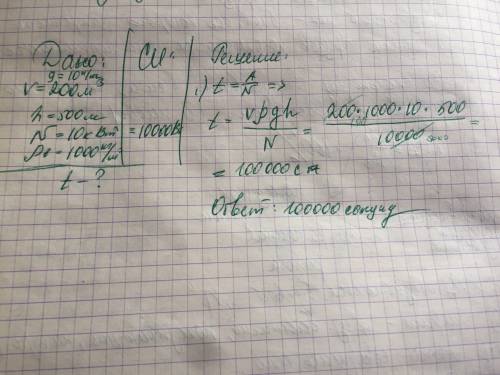 Дано:
g = 10 м/с²
V = 200 м³
h = 500 м
N = 10 кВт
ρв = 1000 кг/м³
t - ?
СИ:
= 10000 Вт
Решение:
1) t = A/N =>
t = Vρgh/N = 200·1000·10·500/10000 =
= 100000 с
Ответ: 100000 секунд